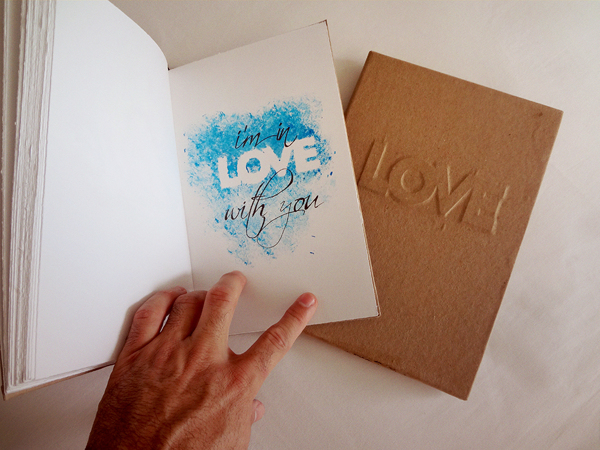 i'm in
LOVE
with you
LOVE